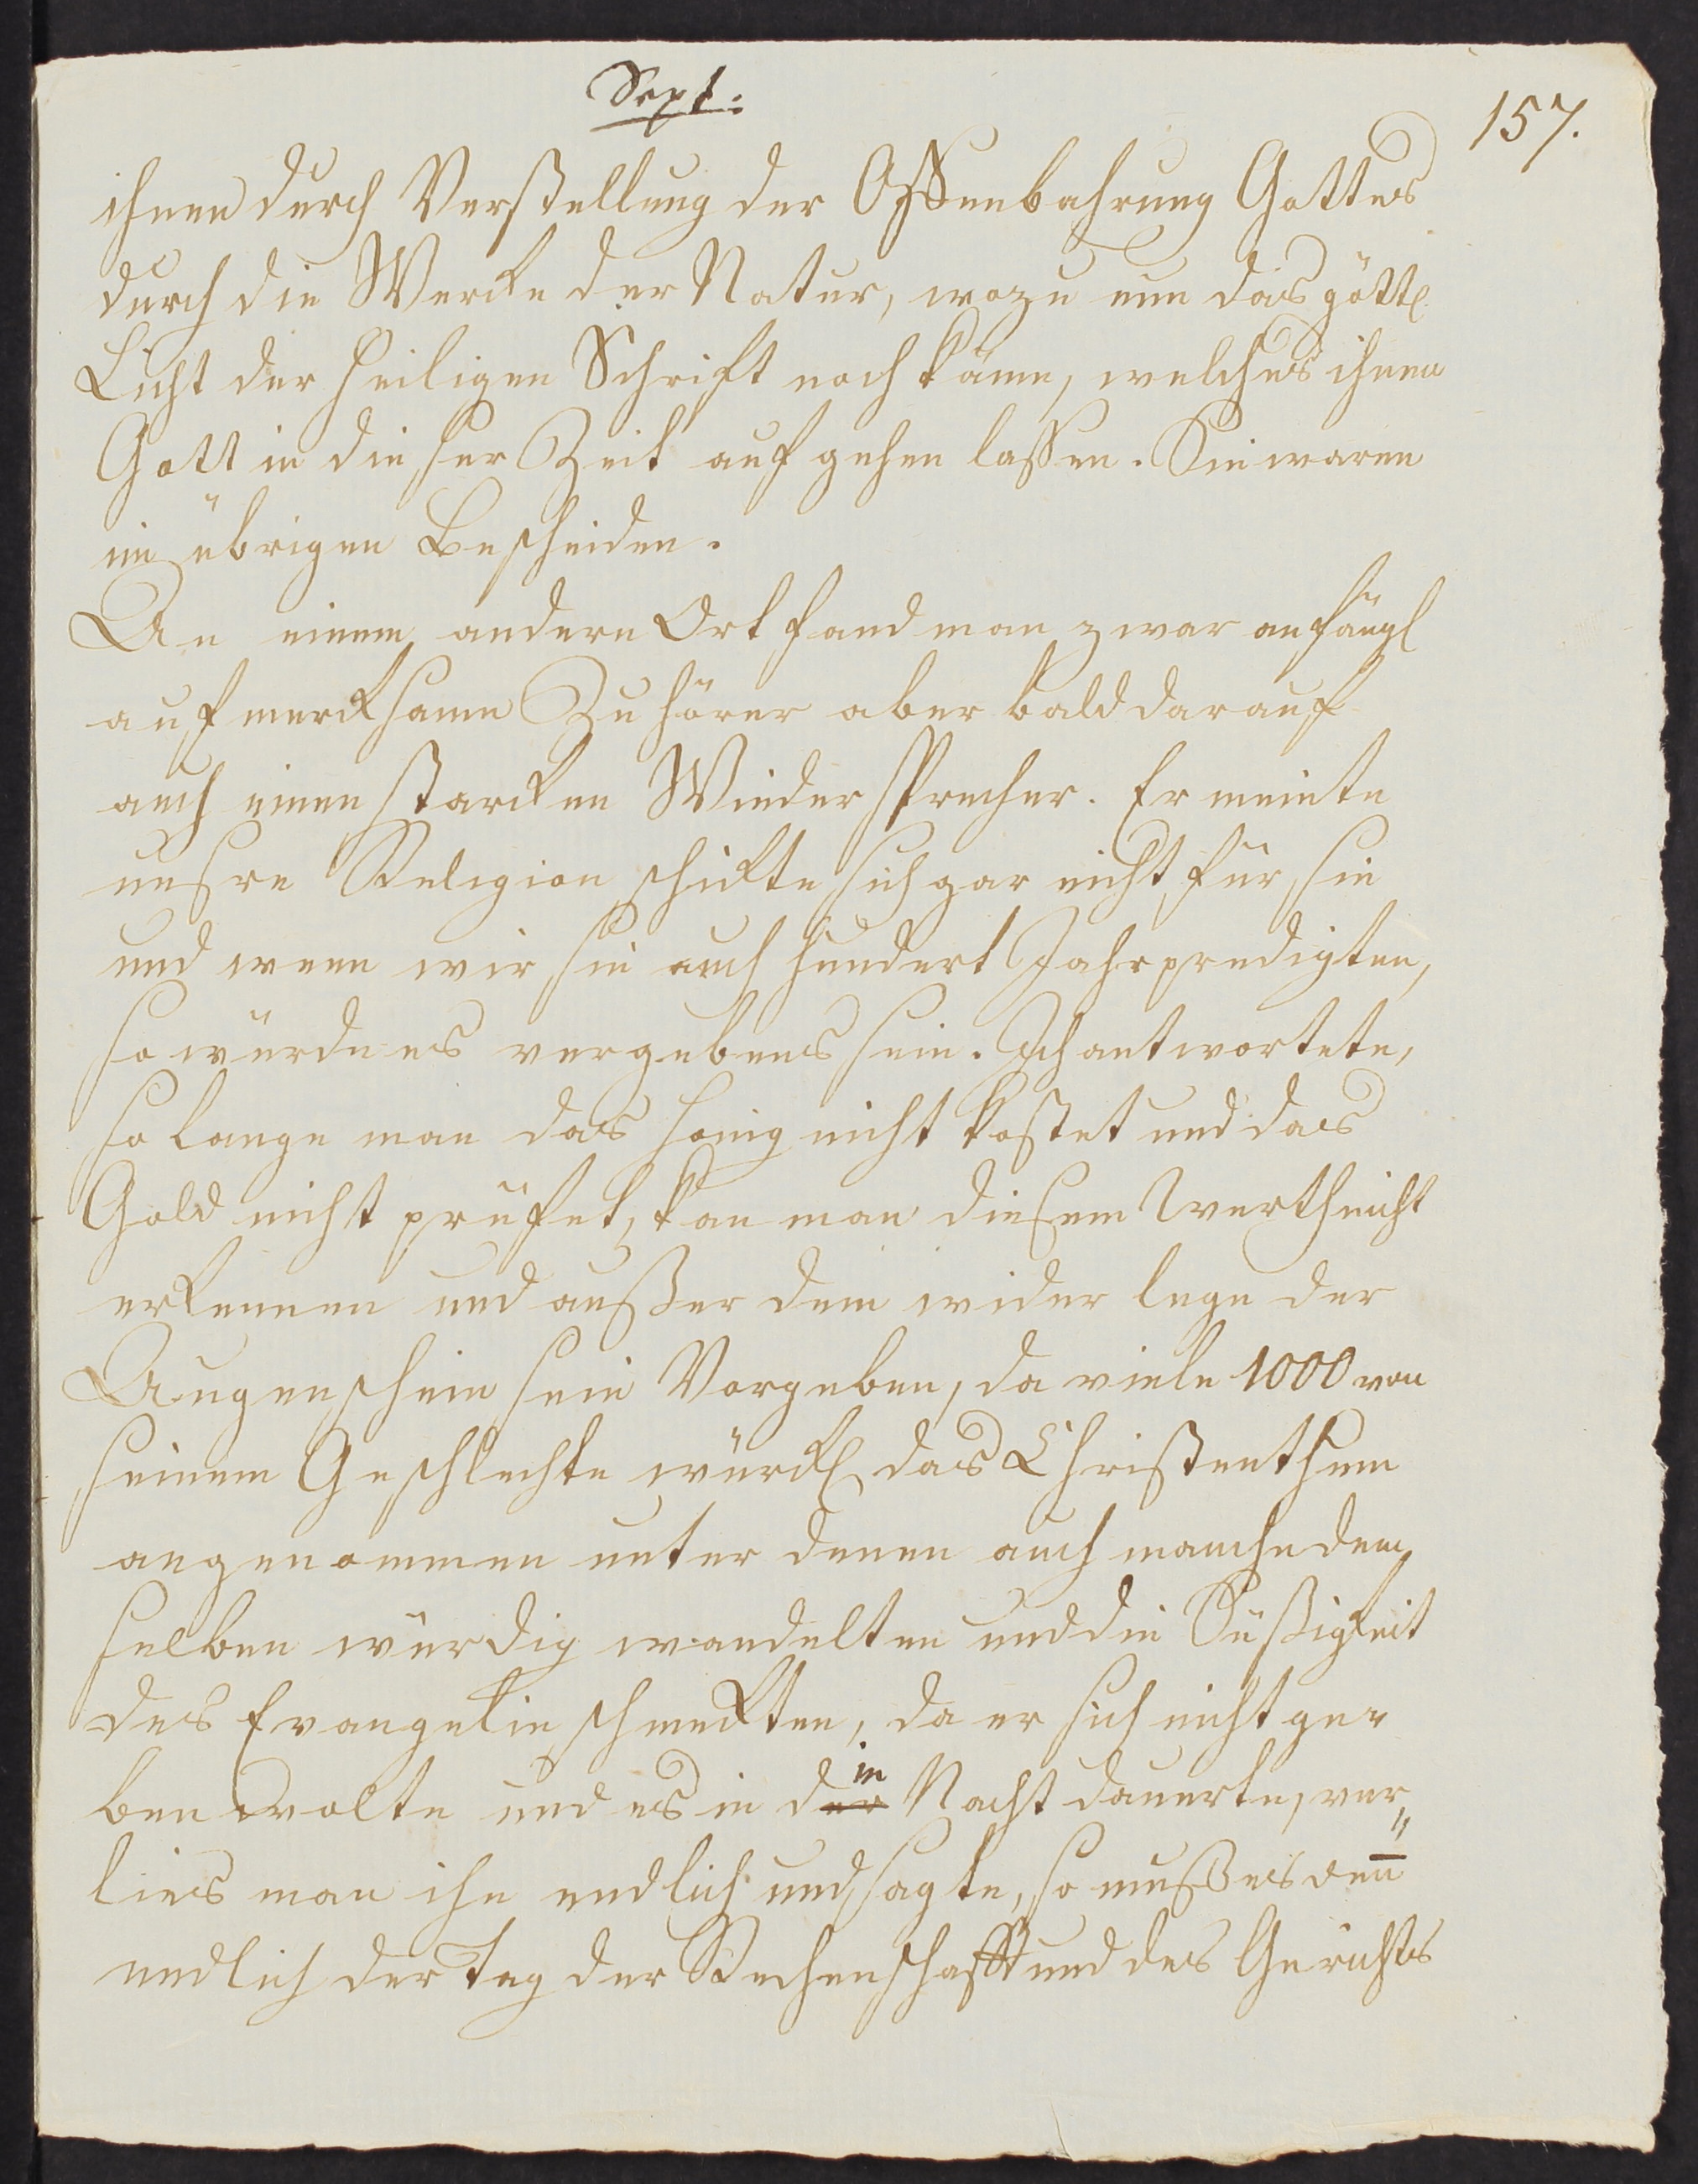 Sept:
157.
ihnen durch Verstellung der Offenbahrung Gottes
durch die Wercke der Natur, wozu nun das göttl.
Licht der heiligen Schrift noch käme, welches ihnen
Gott in dieser Zeit aufgehen lassen. Sie waren
im übrigen Bescheiden.
An einem andern Ort fand man zwar anfängl
aufmercksame Zuhörer aber bald darauf
auch einen starcken Wiedersprecher. Er meinte
unsre Religion schickte sich gar nicht für sie
und wenn wir sie auch hundert Jahr predigten,
so würde es vergebens sein. Ich antwortete,
so lange man das Honig nicht kostet und das
Gold nicht prüfet, kan man diesem Werth nicht
erkennen und außer dem wider lege der
Augenschein sein Vorgeben, da viele 1000 von
seinem Geschlechte würckl das Christenthum
angenommen unter denen auch manche dem
selben würdig wandelten und die Süßigkeit
des Evangelie schmeckten, da er sich nicht ge„
ben wolte und es in der in Nacht dauerte, ver„
lies man ihn endlich und sagte, so muß es den̄
endlich der Tag der Rechenschafft und des Gerichts